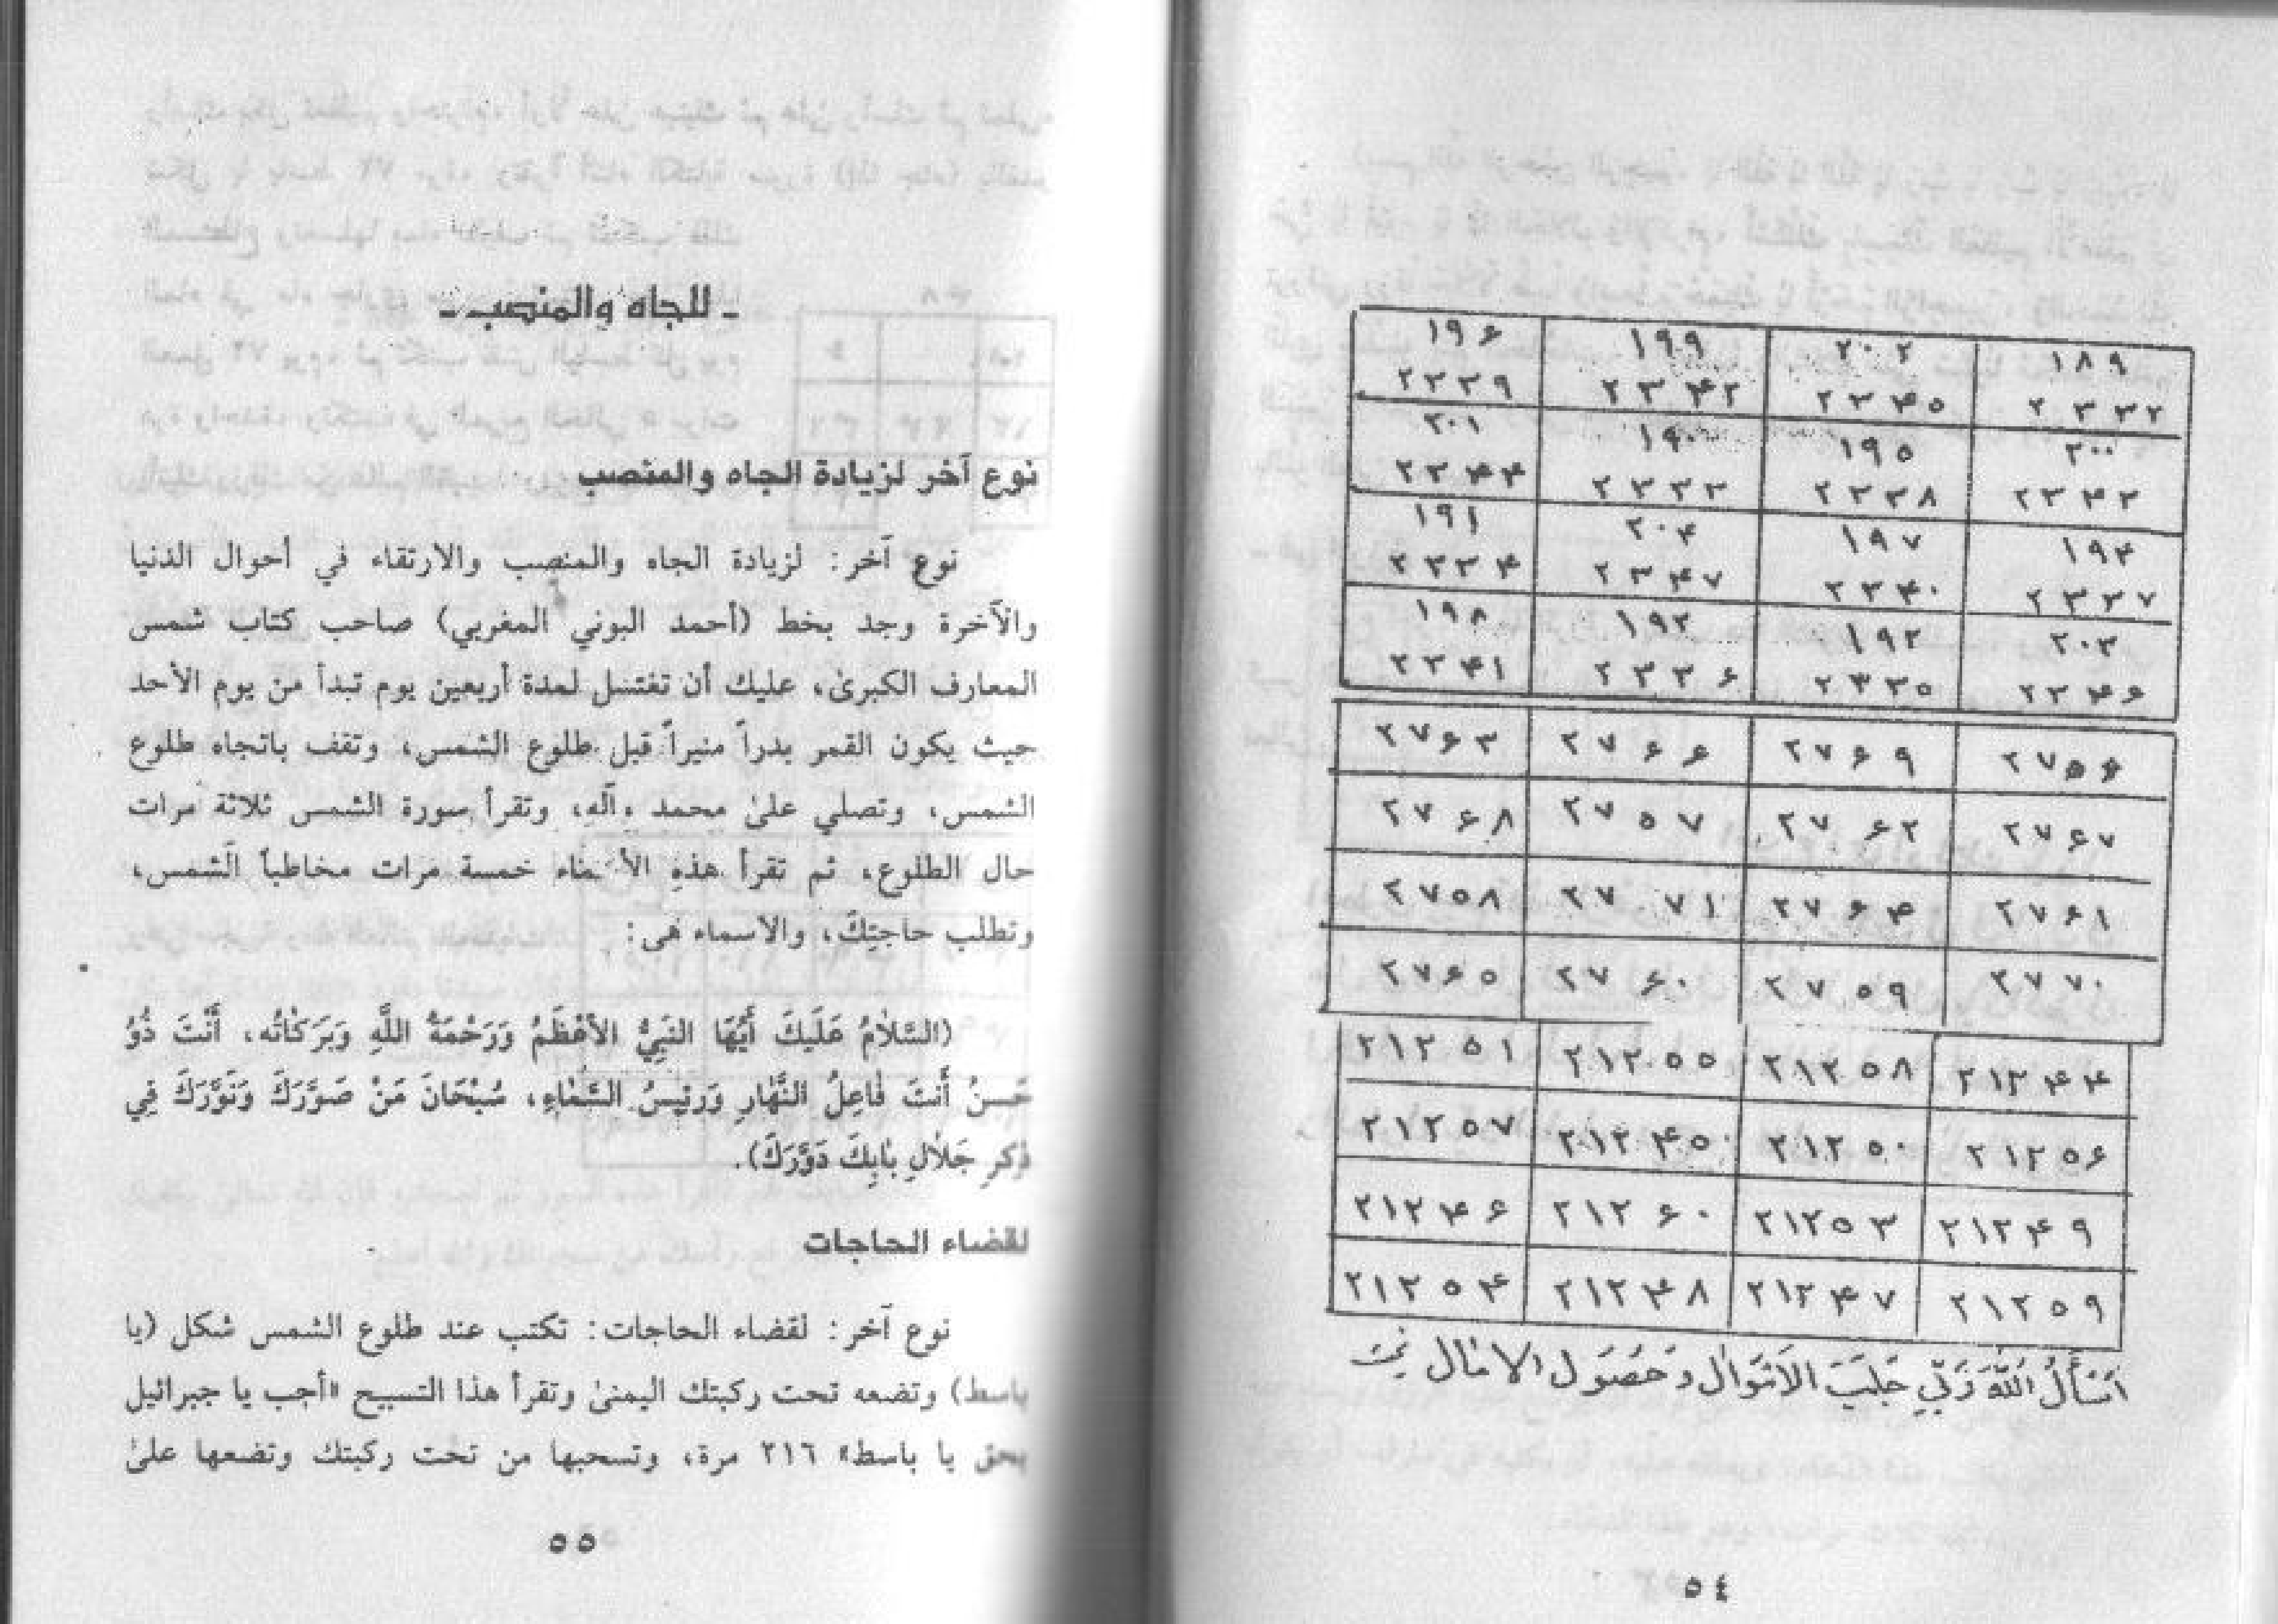 ١٨٩ ٢٠٢ ١٩٩ ١٩۶
٢٣٣٢ ٢٣۴٥ ٢٣۴٢ ٢٣٣٩
٢٠٠ ١٩٥ ١٩٠ ٢٠١
٢٣۴٣ ٢٣٣٨ ٢٣٣٣ ٢٣۴۴
١٩۴ ١٩٧ ٢٠۴ ١٩١
٢٣٣٧ ٢٣۴٠ ٢٣۴٧ ٢٣٣۴
٢٠٣ ١٩٢ ١٩٣ ١٩٨
٢٣۴۶ ٢٣٣٥ ٢٣٣۶ ٢٣۴١
٢٧٥۶ ٢٧۶٩ ٢٧۶۶ ٢٧۶٣
٢٧۶٧ ٢٧۶٢ ٢٧٥٧ ٢٧۶٨
٢٧۶١ ٢٧۶۴ ٢٧٧١ ٢٧٥٨
٢٧٧٠ ٢٧٥٩ ٢٧۶٠ ٢٧۶٥
٢١٢۴۴ ٢١٢٥٨ ٢١٢٥٥ ٢١٢٥١
٢١٢٥۶ ٢١٢٥٠ ٢١٢۴٥٠ ٢١٢٥٧
٢١٢۴٩ ٢١٢٥٣ ٢١٢۶٠ ٢١٢۴۶
٢١٢٥٩ ٢١٢۴٧ ٢١٢۴٨ ٢١٢٥۴
اَسْأَلُ اللهَ رَبّي جَلبَ الاَمْوَال وَحُصُولِ الامال
٥٤
ـ للجاه والمنصب ـ
نوع آخر لزيادة الجاه والمنصب
نوع آخر: لزيادة الجاه والمنصب والارتقاء في أحوال الدنيا
والآخرة وجد بخط (أحمد البوني المغربي) صاحب كتاب شمس
المعارف الكبرىٰ، عليك أن تغتسل لمدة أربعين يوم تبدأ من يوم الأحد
حيث يكون القمر بدراً منيراً قبل طلوع الشمس، وتقف باتجاه طلوع
الشمس، وتصلي علىٰ محمد وآله، وتقرأ سورة الشمس ثلاثة مرات
حال الطلوع، ثم تقرأ هذه الأسماء خمسة مرات مخاطباً الشمس،
وتطلب حاجتك، والاسماء هى:
(السَّلاٰمُ عَلَيكَ أَيُهَا النَبِيُّ الأعْظَمُ وَرَحْمَةُ اللَّهِ وَبَرَكٰاتُه، أَنْتَ ذُوُ
حَسنُ أَنتَ فٰاعِلُ النَّهٰارِ وَرَئِيسُ السَّمٰاءِ، سُبْحَانَ مَنْ صَوَّرَكَ وَنَوَّرَكَ فِي
ذِكرِ جَلاٰلِ بٰابِكَ دَوَّرَكَ).
لقضاء الحاجات
نوع آخر: لقضاء الحاجات: تكتب عند طلوع الشمس شكل (يا
باسط) وتضعه تحت ركبتك اليمنىٰ وتقرأ هذا التسبيح «أجب يا جبرائيل
بحق يا باسط» ٢١٦ مرة، وتسحبها من تحت ركبتك وتضعها علىٰ
٥٥